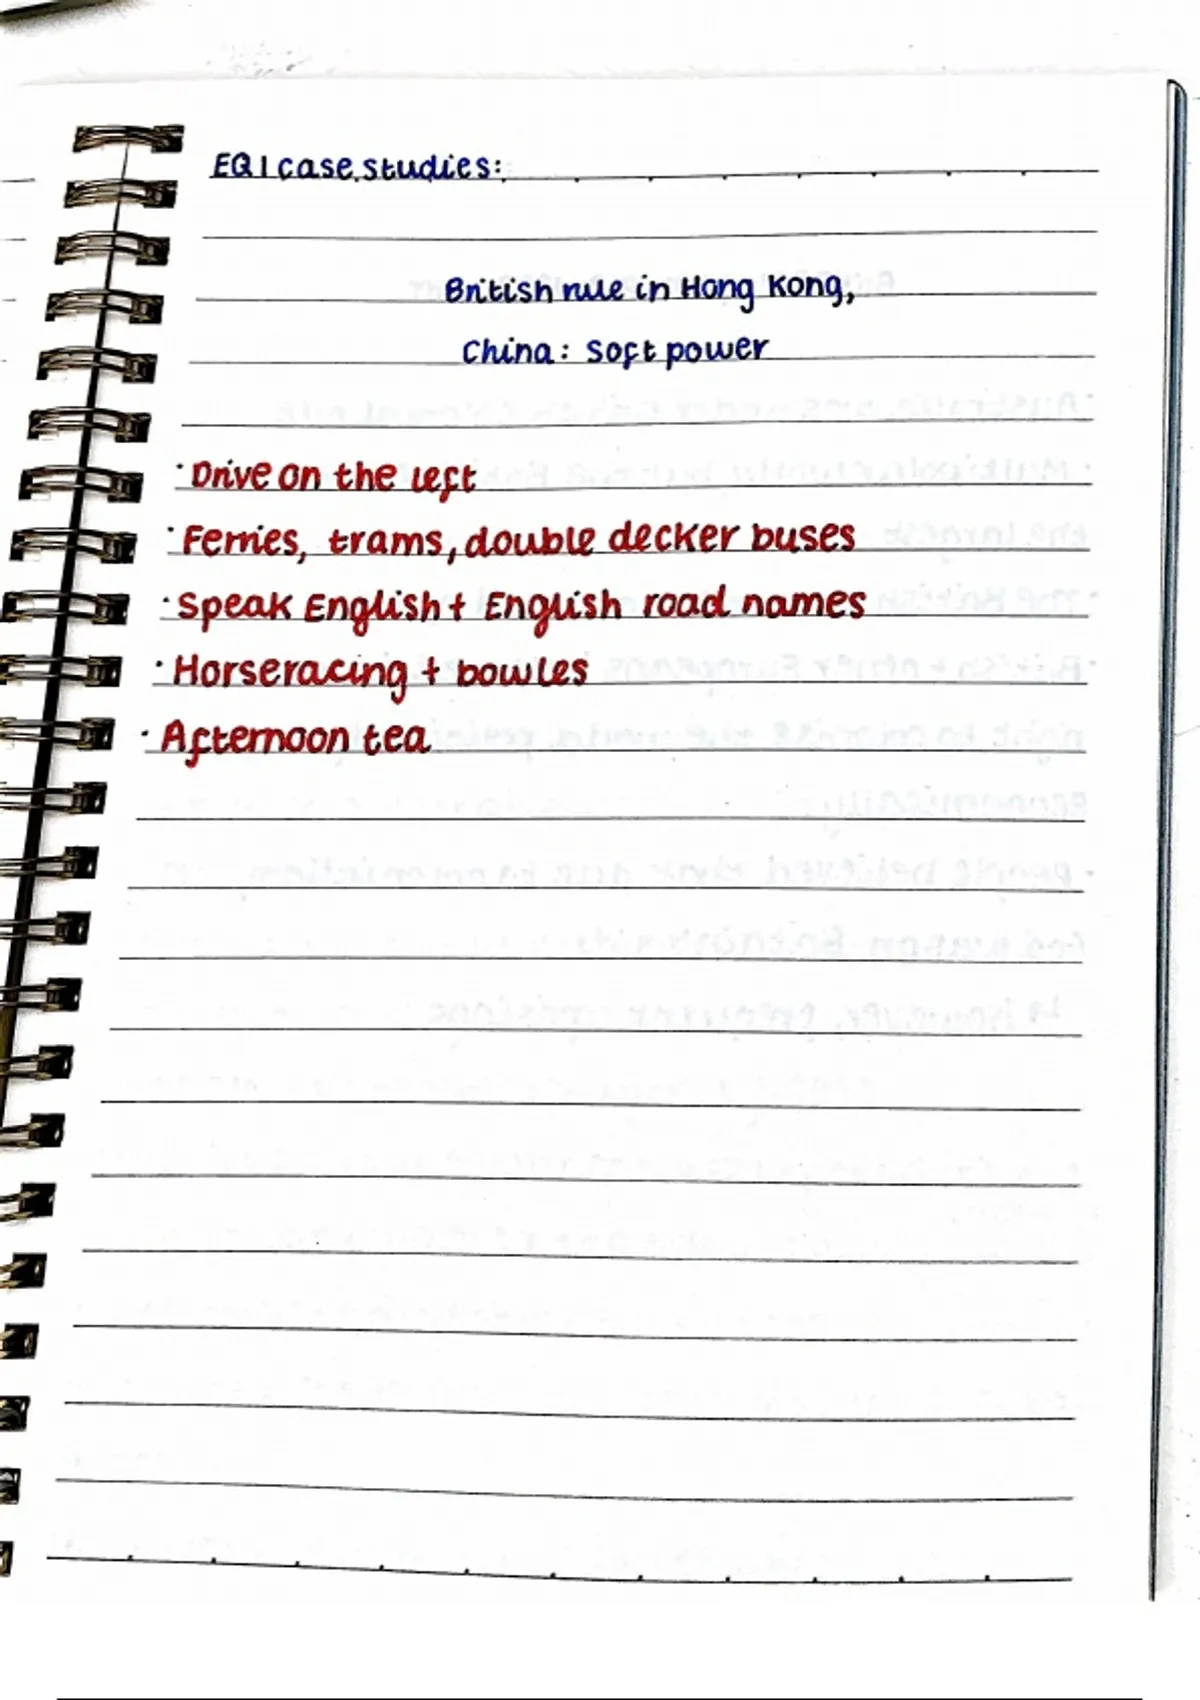 EQ1 case studies:
British rule in Hong Kong,
China: Soft power
· Drive on the left
· Ferries, trams, double decker buses
· Speak English + English road names
· Horseracing + bowles
· Afternoon tea